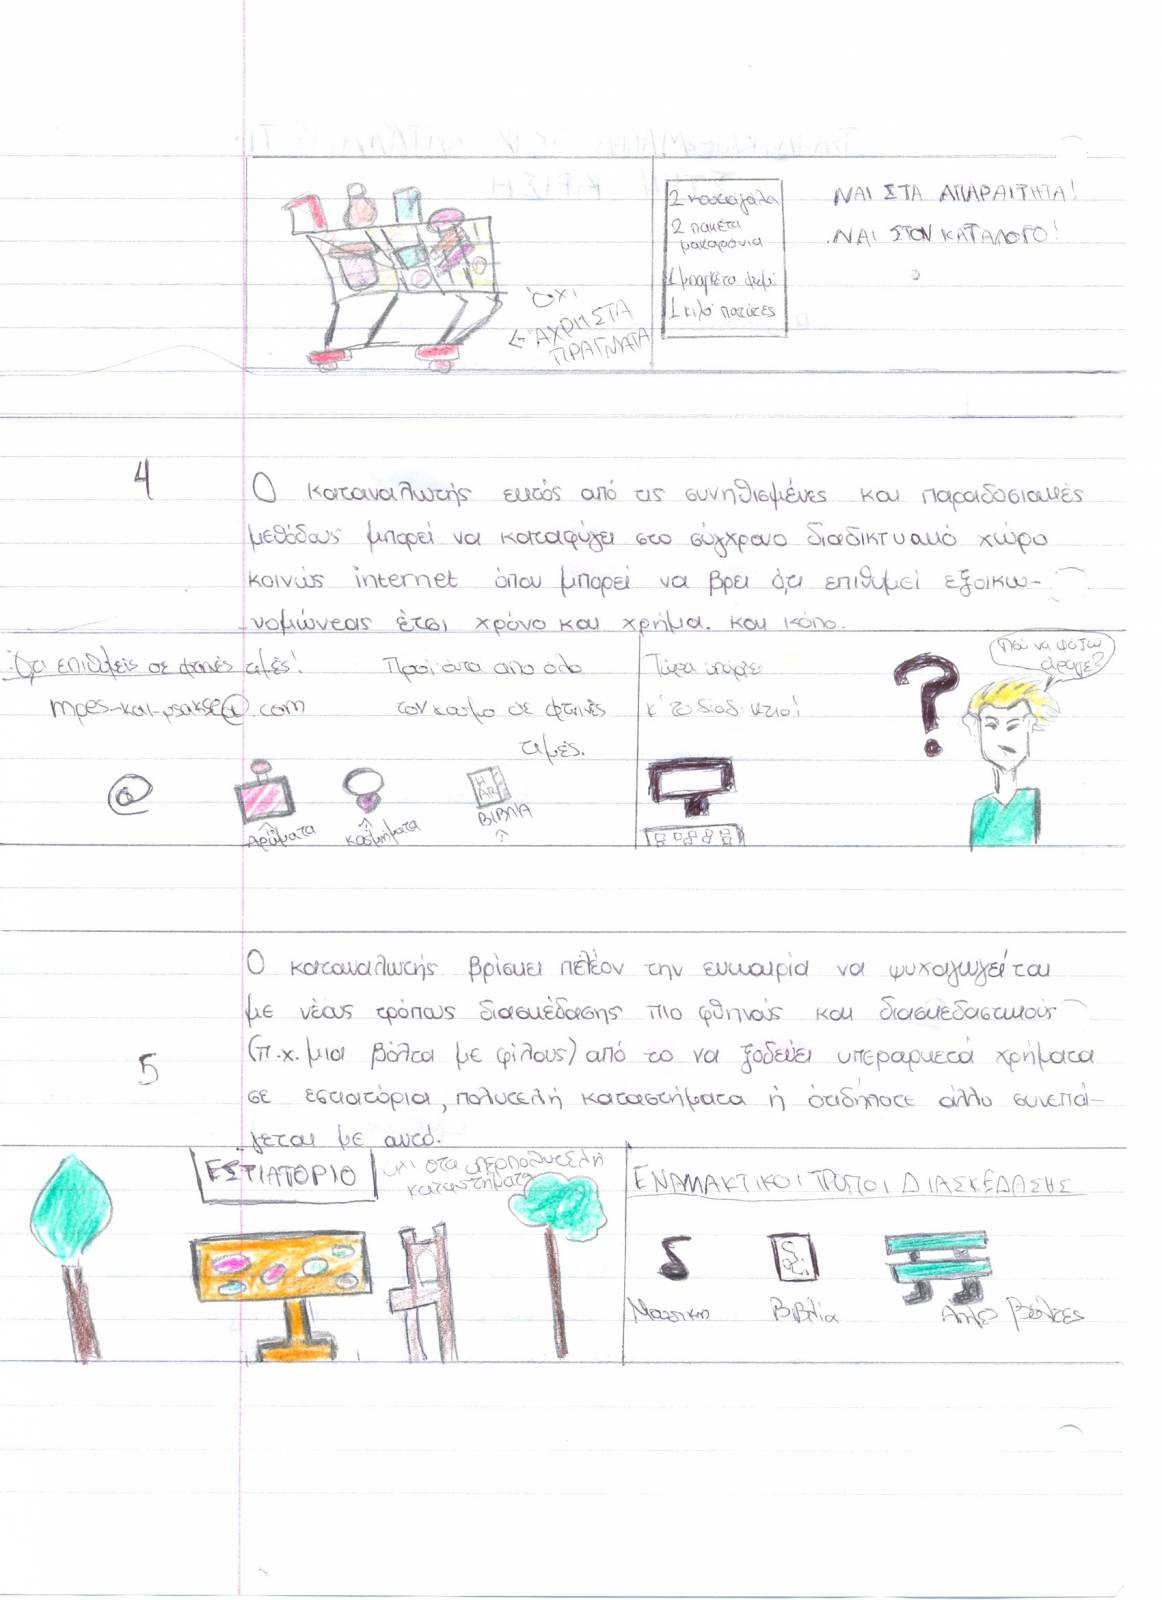 2 κουτιά γάλα
2 πακέτα
μακαρόνια
1 μπαγκέτα ψωμί
1 κιλό πατάτες
ΝΑΙ ΣΤΑ ΑΠΑΡΑΙΤΗΤΑ!
ΝΑΙ ΣΤΟΝ ΚΑΤΑΛΟΓΟ!
ΌΧΙ
ΆΧΡΗΣΤΑ
ΠΡΑΓΜΑΤΑ
4
Ο καταναλωτής εκτός από τις συνηθισμένες και παραδοσιακές
μεθόδους μπορεί να καταφύγει στο σύγχρονο διαδικτυακό χώρο
κοινώς internet όπου μπορεί να βρει ό,τι επιθυμεί εξοικω-
νομώντας έτσι χρόνο και χρήμα. και κόπο.
Ότι επιθυμείς σε φτηνές τιμές!
mpes-kai-psakse@.com
Προϊόντα απο όλο
τον κόσμο σε φτηνές
τιμές.
@
Αρώματα
Κοσμήματα
ΒΙΒΛΙΑ
Τώρα υπάρχει
κ' το διαδίκτιο!
?
Πού να ψάξω
άραγε?
Ο καταναλωτής βρίσκει πλέον την ευκαιρία να ψυχαγωγείται
με νέους τρόπους διασκέδασης πιο φθηνούς και διασκεδαστικούς
(π.χ. μια βόλτα με φίλους) από το να ξοδεύει υπεραρκετά χρήματα
5
σε εστιατόρια, πολυτελή καταστήματα ή οτιδήποτε άλλο συνεπά-
γεται με αυτό.
ΕΣΤΙΑΤΟΡΙΟ
όχι στα υπερπολυτελή
καταστήματα
ΕΝΑΛΛΑΚΤΙΚΟΙ ΤΡΟΠΟΙ ΔΙΑΣΚΕΔΑΣΗΣ
Μουσικη
Βιβλία
Απλές βόλτες